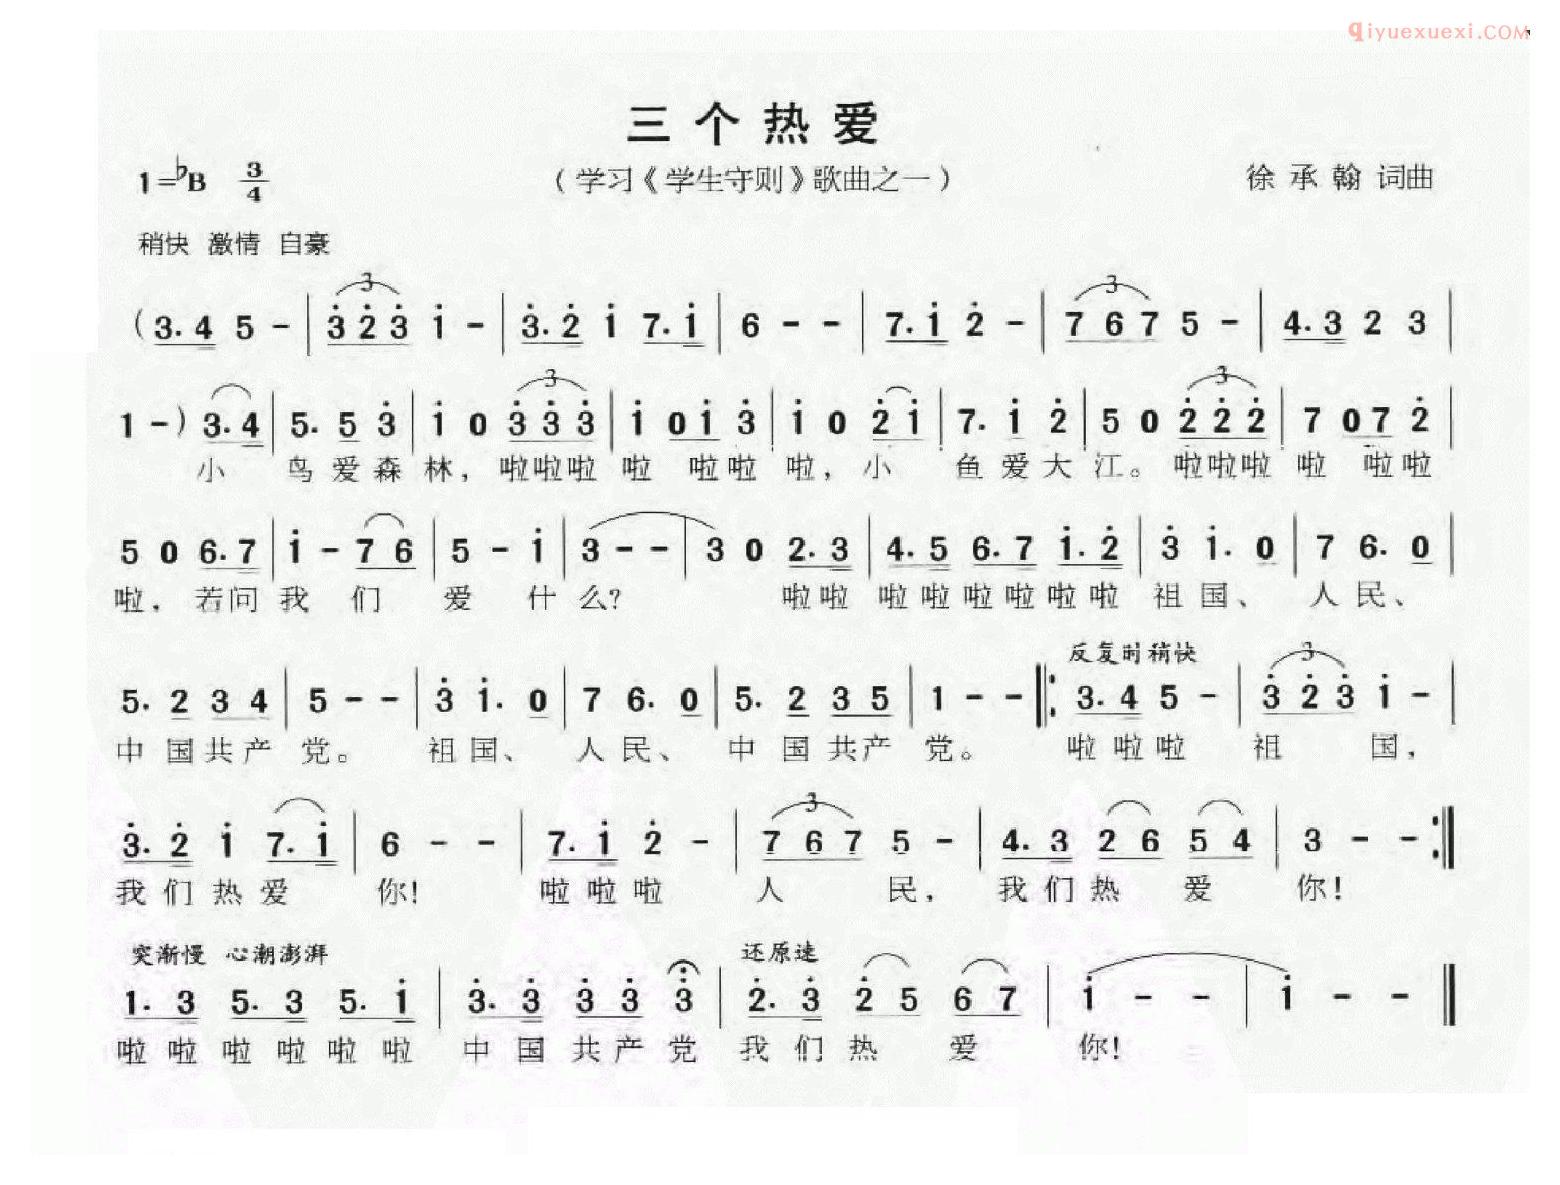 qiyuexuexi.COM
三个热爱
1=♭B 3/4 (学习《学生守则》歌曲之一) 徐承翰 词曲
稍快 激情 自豪
(3. 4 5 - | 3 2 3 1 - | 3. 2 1 7. 1 | 6 - - | 7. 1 2 - | 7 6 7 5 - | 4. 3 2 3 |
1 -) 3. 4 | 5. 5 3 | 1 0 3 3 3 | 1 0 1 3 | 1 0 2 1 | 7. 1 2 | 5 0 2 2 2 | 7 0 7 2 |
小 鸟爱森林, 啦啦啦 啦 啦啦 啦, 小 鱼爱大江。 啦啦啦 啦 啦啦
5 0 6. 7 | 1 - 7 6 | 5 - 1 | 3 - - | 3 0 2. 3 | 4. 5 6. 7 1. 2 | 3 1. 0 | 7 6. 0 |
啦, 若问我 们 爱 什 么? 啦啦 啦啦啦啦啦啦 祖国、 人民、
反复时稍快
5. 2 3 4 | 5 - - | 3 1. 0 | 7 6. 0 | 5. 2 3 5 | 1 - - |: 3. 4 5 - | 3 2 3 1 - |
中 国共产 党。 祖国、 人民、 中 国共产 党。 啦啦啦 祖 国,
3. 2 1 7. 1 | 6 - - | 7. 1 2 - | 7 6 7 5 - | 4. 3 2 6 5 4 | 3 - - :|
我们热爱 你! 啦啦啦 人 民, 我们热 爱 你!
突渐慢 心潮澎湃 还原速
1. 3 5. 3 5. 1 | 3. 3 3 3 3 | 2. 3 2 5 6 7 | 1 - - | 1 - - ‖
啦啦啦啦啦啦 中国共产党 我们热 爱 你!